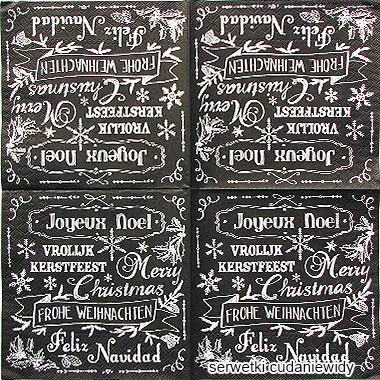 Feliz
Navidad
FROHE WEIHNACHTEN
Christmas
Merry
KERSTFEEST
VROLIJK
Joyeux Noel
Feliz
Navidad
FROHE WEIHNACHTEN
Christmas
Merry
KERSTFEEST
VROLIJK
Joyeux Noel
Joyeux Noel
VROLIJK
KERSTFEEST
Merry
Christmas
FROHE WEIHNACHTEN
Feliz
Navidad
Joyeux Noel
VROLIJK
KERSTFEEST
Merry
Christmas
FROHE WEIHNACHTEN
Feliz
Navidad
serwetki cudaniewidy